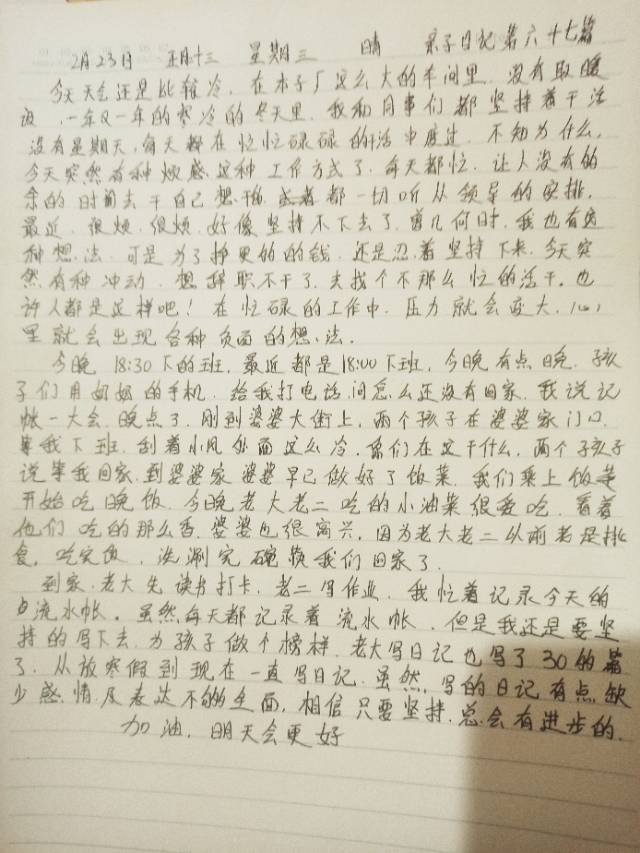 2月23日 正月十三 星期三 晴 亲子日记第六十七篇
今天天气还是比较冷，在本子厂这么大的车间里，没有取暖
设，一年又一年的寒冷的冬天里，我和同事们都坚持着干活
没有星期天，每天都在忙忙碌碌的活中度过，不知为什么，
今天突然有种烦感这种工作方式了，每天都忙，让人没有的
余的时间去干自己想干的，或者都一切听从领导的安排，
最近，很烦，很烦，好像坚持不下去了，曾几何时，我也有这
种想法，可是为了挣更的的钱，还是忍着坚持下来，今天突
然有种冲动，想辞职不干了，去找个不那么忙的活干，也
许人都是这样吧！在忙碌的工作中，压力就会变大，心
里就会出现各种负面的想法。
今晚 18:30下的班，最近都是18:00下班，今晚有点晚，孩
子们用奶奶的手机，给我打电话问怎么还没有回家，我说记
帐一大会，晚点了，刚到婆婆大街上，两个孩子在婆婆家门口
等我下班，刮着小风外面这么冷，你们在这干什么，两个孩子
说等我回家，到婆婆家婆婆早已做好了饭菜，我们乘上饭菜
开始吃晚饭，今晚老大老二吃的小油菜很爱吃，看着
他们吃的那么香，婆婆也很高兴，因为老大老二以前老是挑
食，吃完饭，洗涮完碗筷我们回家了。
到家，老大先读书打卡，老二写作业，我忙着记录今天的
流水帐。虽然每天都记录着流水帐，但是我还是要坚
持的写下去，为孩子做个榜样，老大写日记也写了30的篇
了，从放寒假到现在一直写日记，虽然，写的日记有点缺
少感情及表达不的全面，相信只要坚持，总会有进步的，
加油，明天会更好